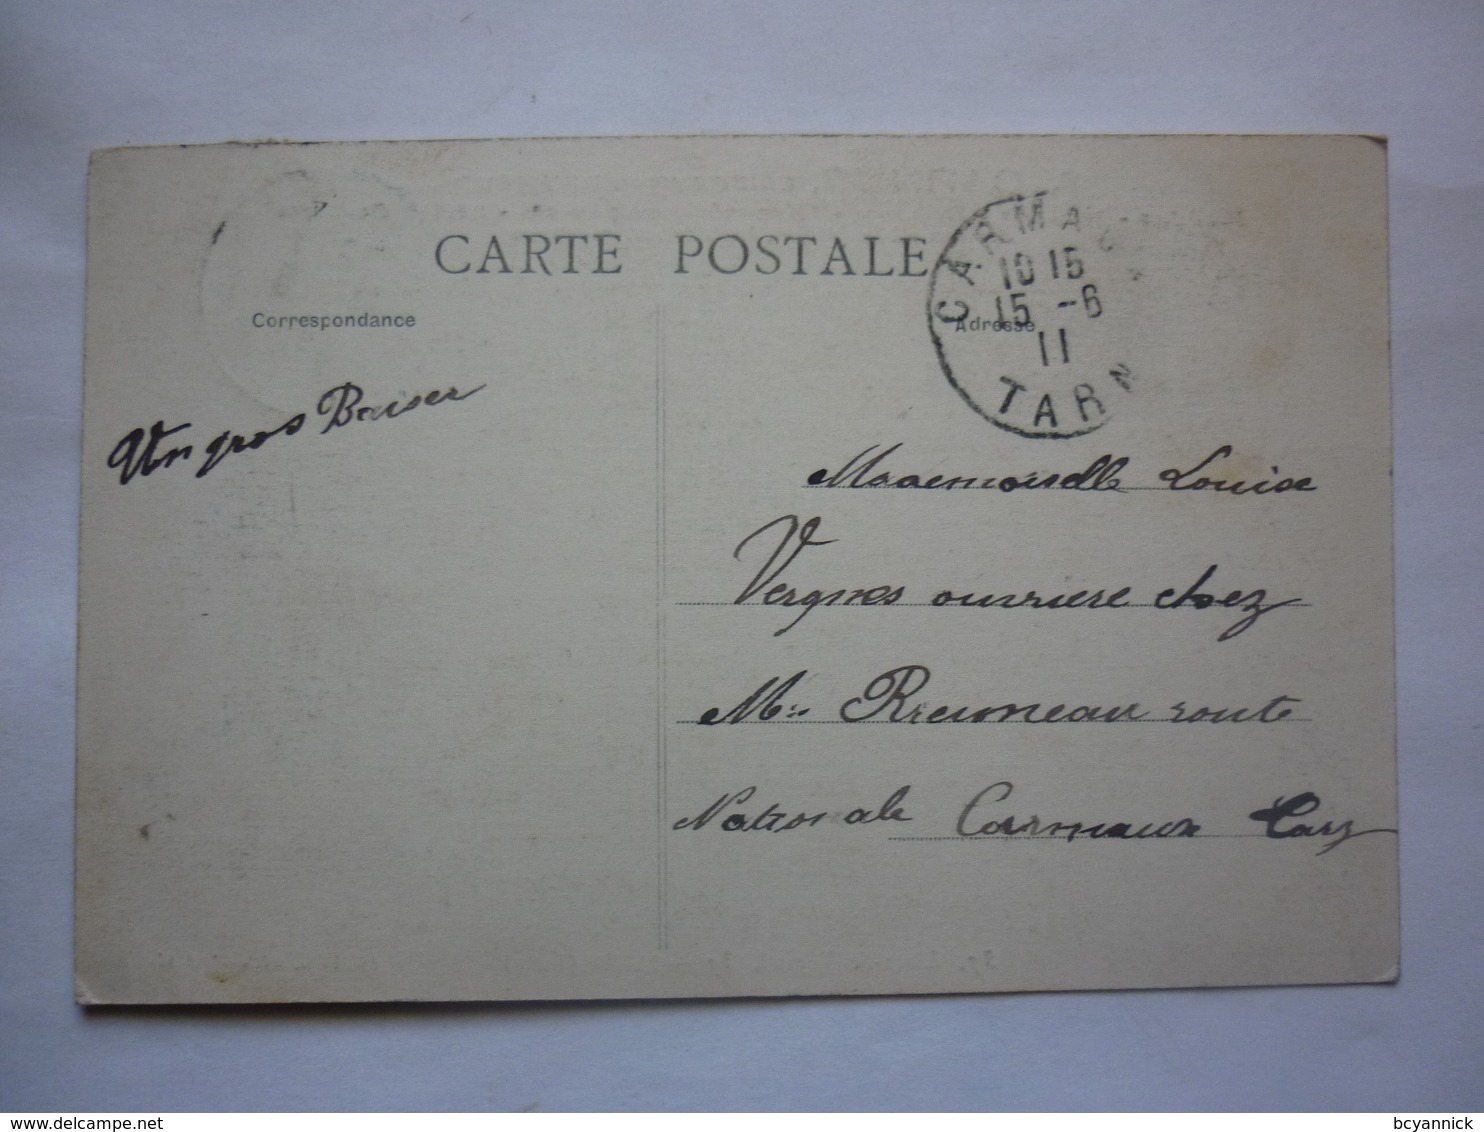 CARTE POSTALE
Correspondance
Adresse
CARMA
10 15
15 -6
11
TARN
Un gros Baiser
Mademoiselle Louise
Vergnes ouvriere chez
Mr route
Nationale Carmaux Tarn
delcampe.net
bcyannick